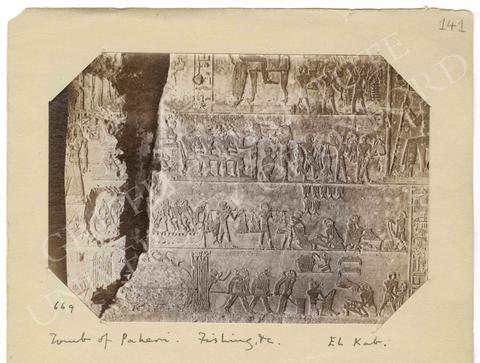 141
669
Tomb of Paheri. Fishing, &c. El Kab.